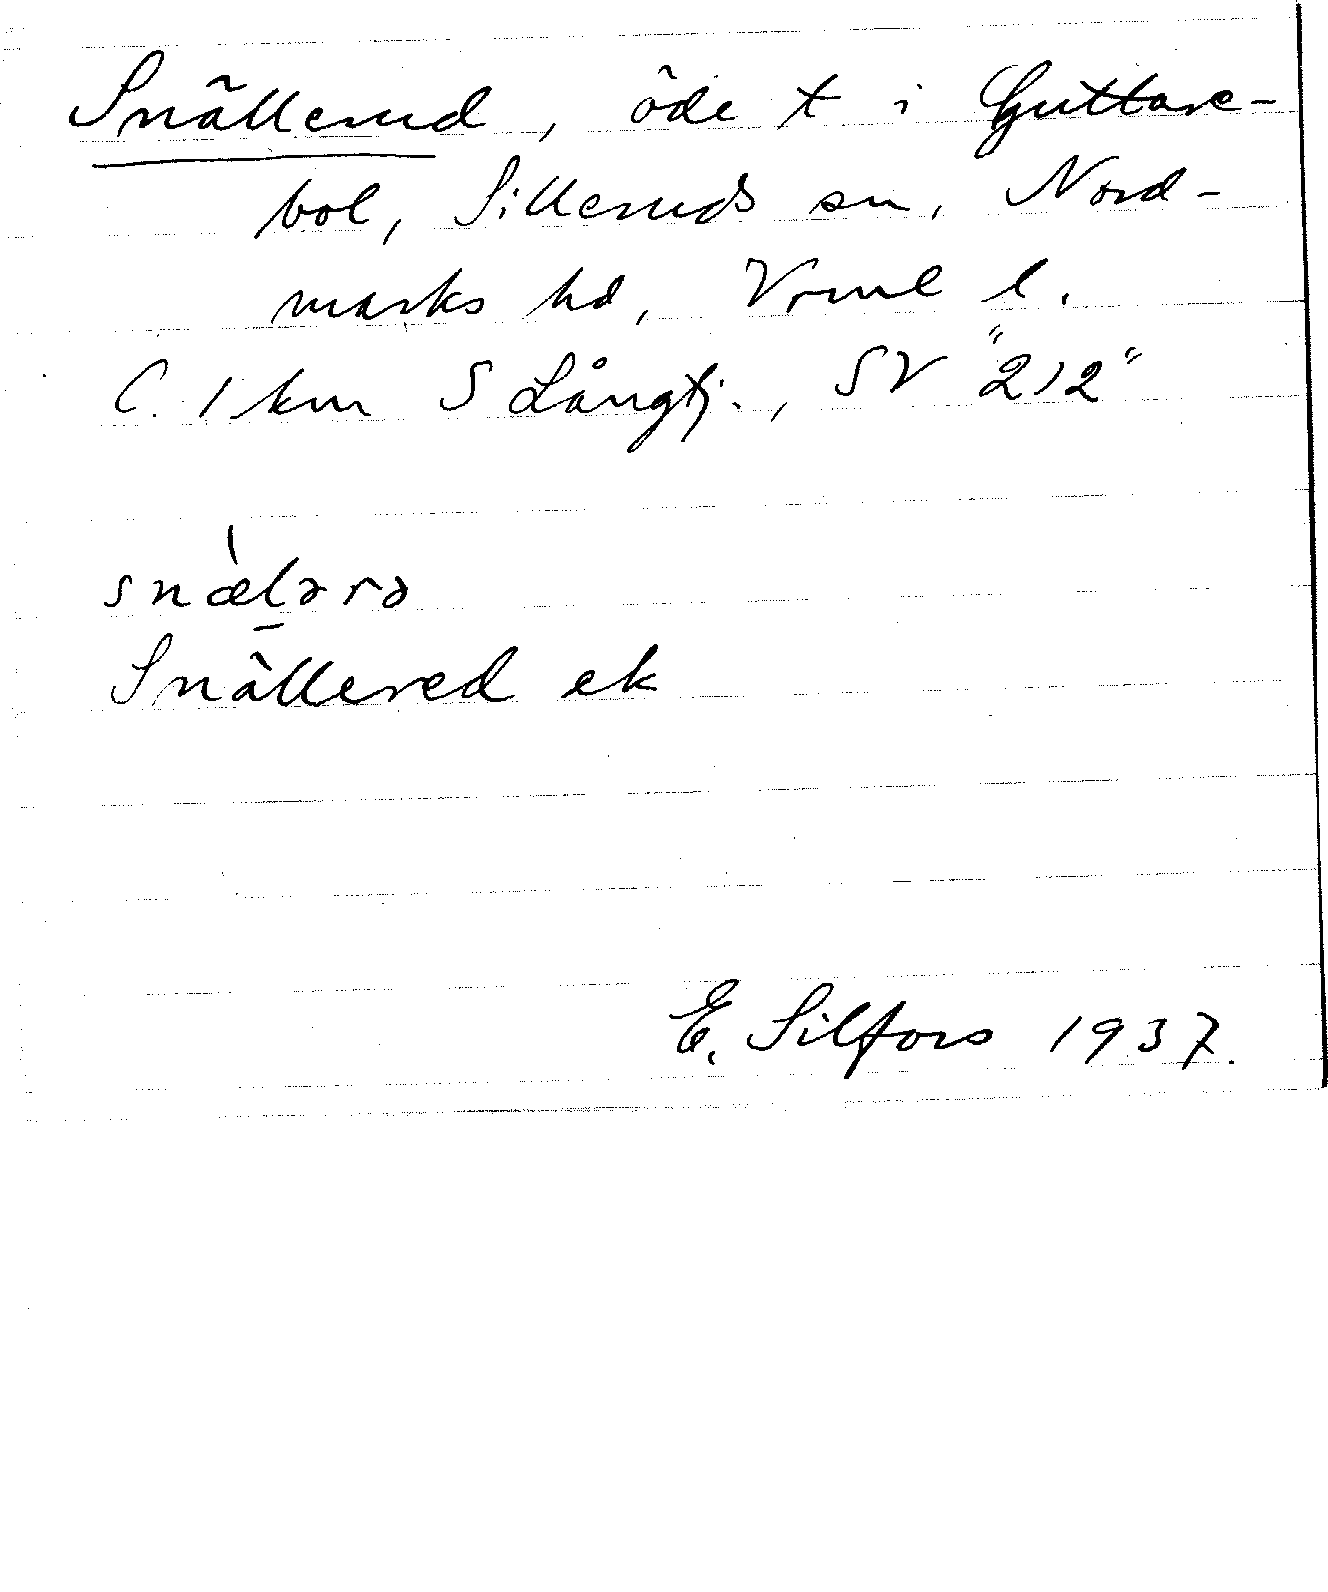 Snällerud, öde t i Guttare-
bol, Silleruds sn, Nord-
marks hd, Vrml l.
C. 1 km S Långtj., SV "212"
snæ̀lərə
Snällered ek
E. Silfors 1937.